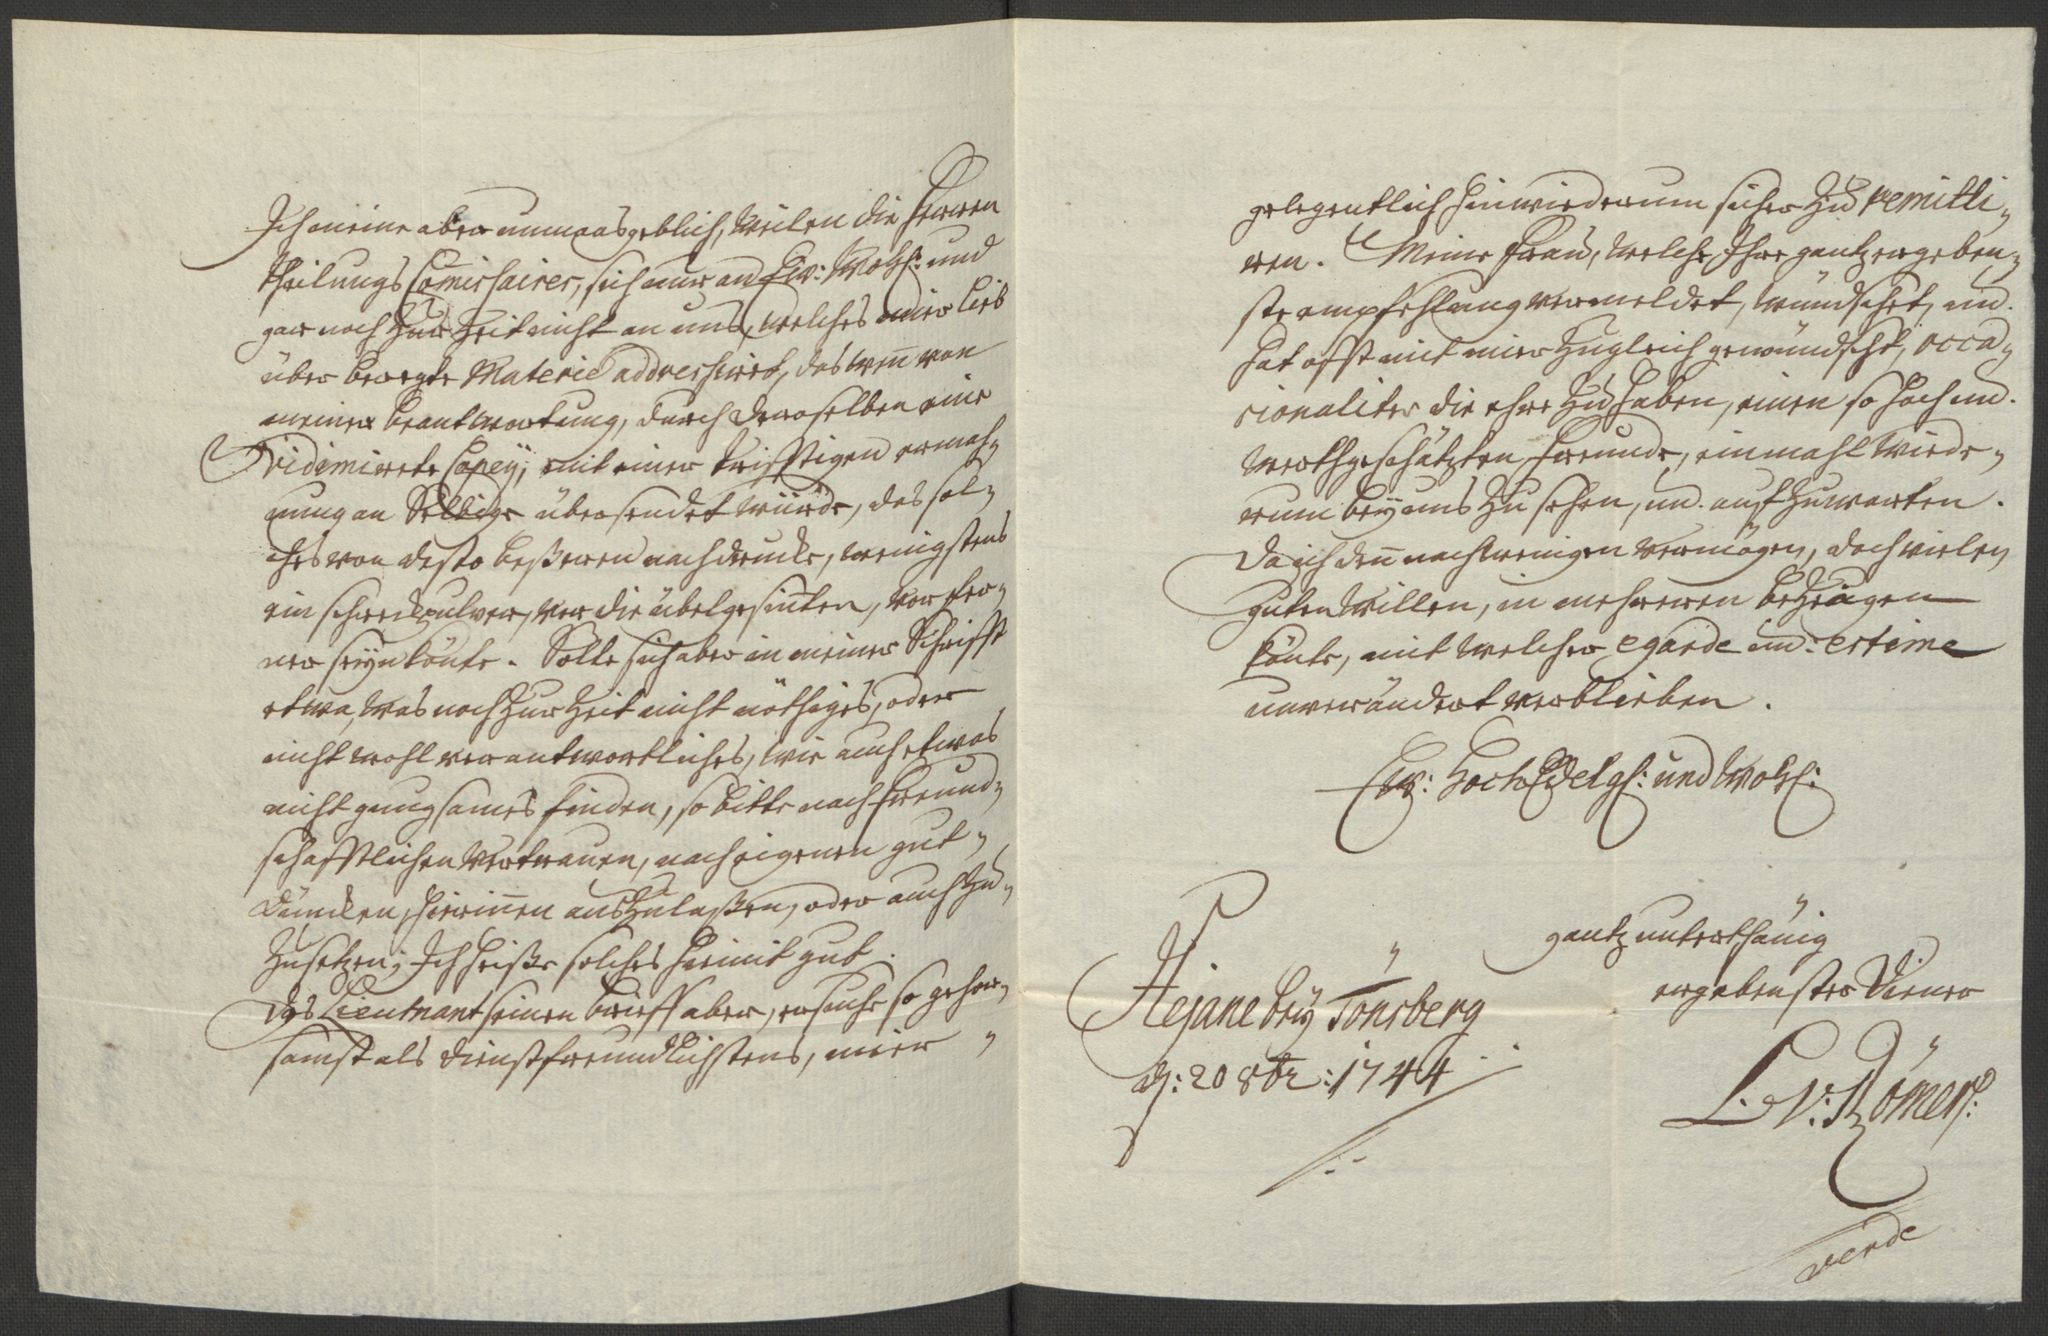 Ich meine aber unmaasgeblich, weilen die Herren
theilungs Comissaires, sich nur an Ew: Wolg: und
gar noch zur Zeit nicht an uns, welches mier lieb
über bewegte Materie addressiret, das wen̄ von
meiner beantwortung, durch deroselben eine
vidimirte Copeÿ, mit einer trifftigen ermah-
nung an Selbige übersendet würde, das sol-
ches von desto beßeren nachdruck, wenigstens
ein schreckpulver, vor die übelgesin̄ten, vor fer-
ner seÿn könte. Solte sich aber in meiner Schrifft
etwa, was noch zur Zeit nicht nöthiges, oder
nicht wohl verantwortliches, wie auch etwas
nicht gnugsames finden, so bitte nach freund-
schafftlichen Vertrauen, nach eigenen gut-
düncken, hierin̄en auszulaßen, oder auch zu-
zusetzen; Ich heiße solches hiermit gut.
Des Lieutnant seinen brieff aber, ersuche so gehor-
samst als dienstfreundlichstens, mier
gelegentlich hinwiederum sicher zu remitti-
ren. Meine Frau, welche Ihre gantz ergeben-
ste empfehlung vermeldet, wündschet, und.
hat offt mit mier zugleich gewündscht, occa-
sionaliter die ehre zu haben, einen so hoch und.
werthgeschätzten Freunde, einmahl wiede-
rum beÿ uns zu sehen, und. auffzuwarten.
Da ich den̄ nach wenigen vermögen, doch vielen
guten Willen, in mehreren bezeügen
könte, mit welcher egarde und: estime
unverändert verblieben.
Ew: HochEdelg: und Wolg:
gantz unterthänig
ergebenster Diener
L. v: Römer:
Aejane beÿ Tönsberg
d: 20 8br: 1744
verte